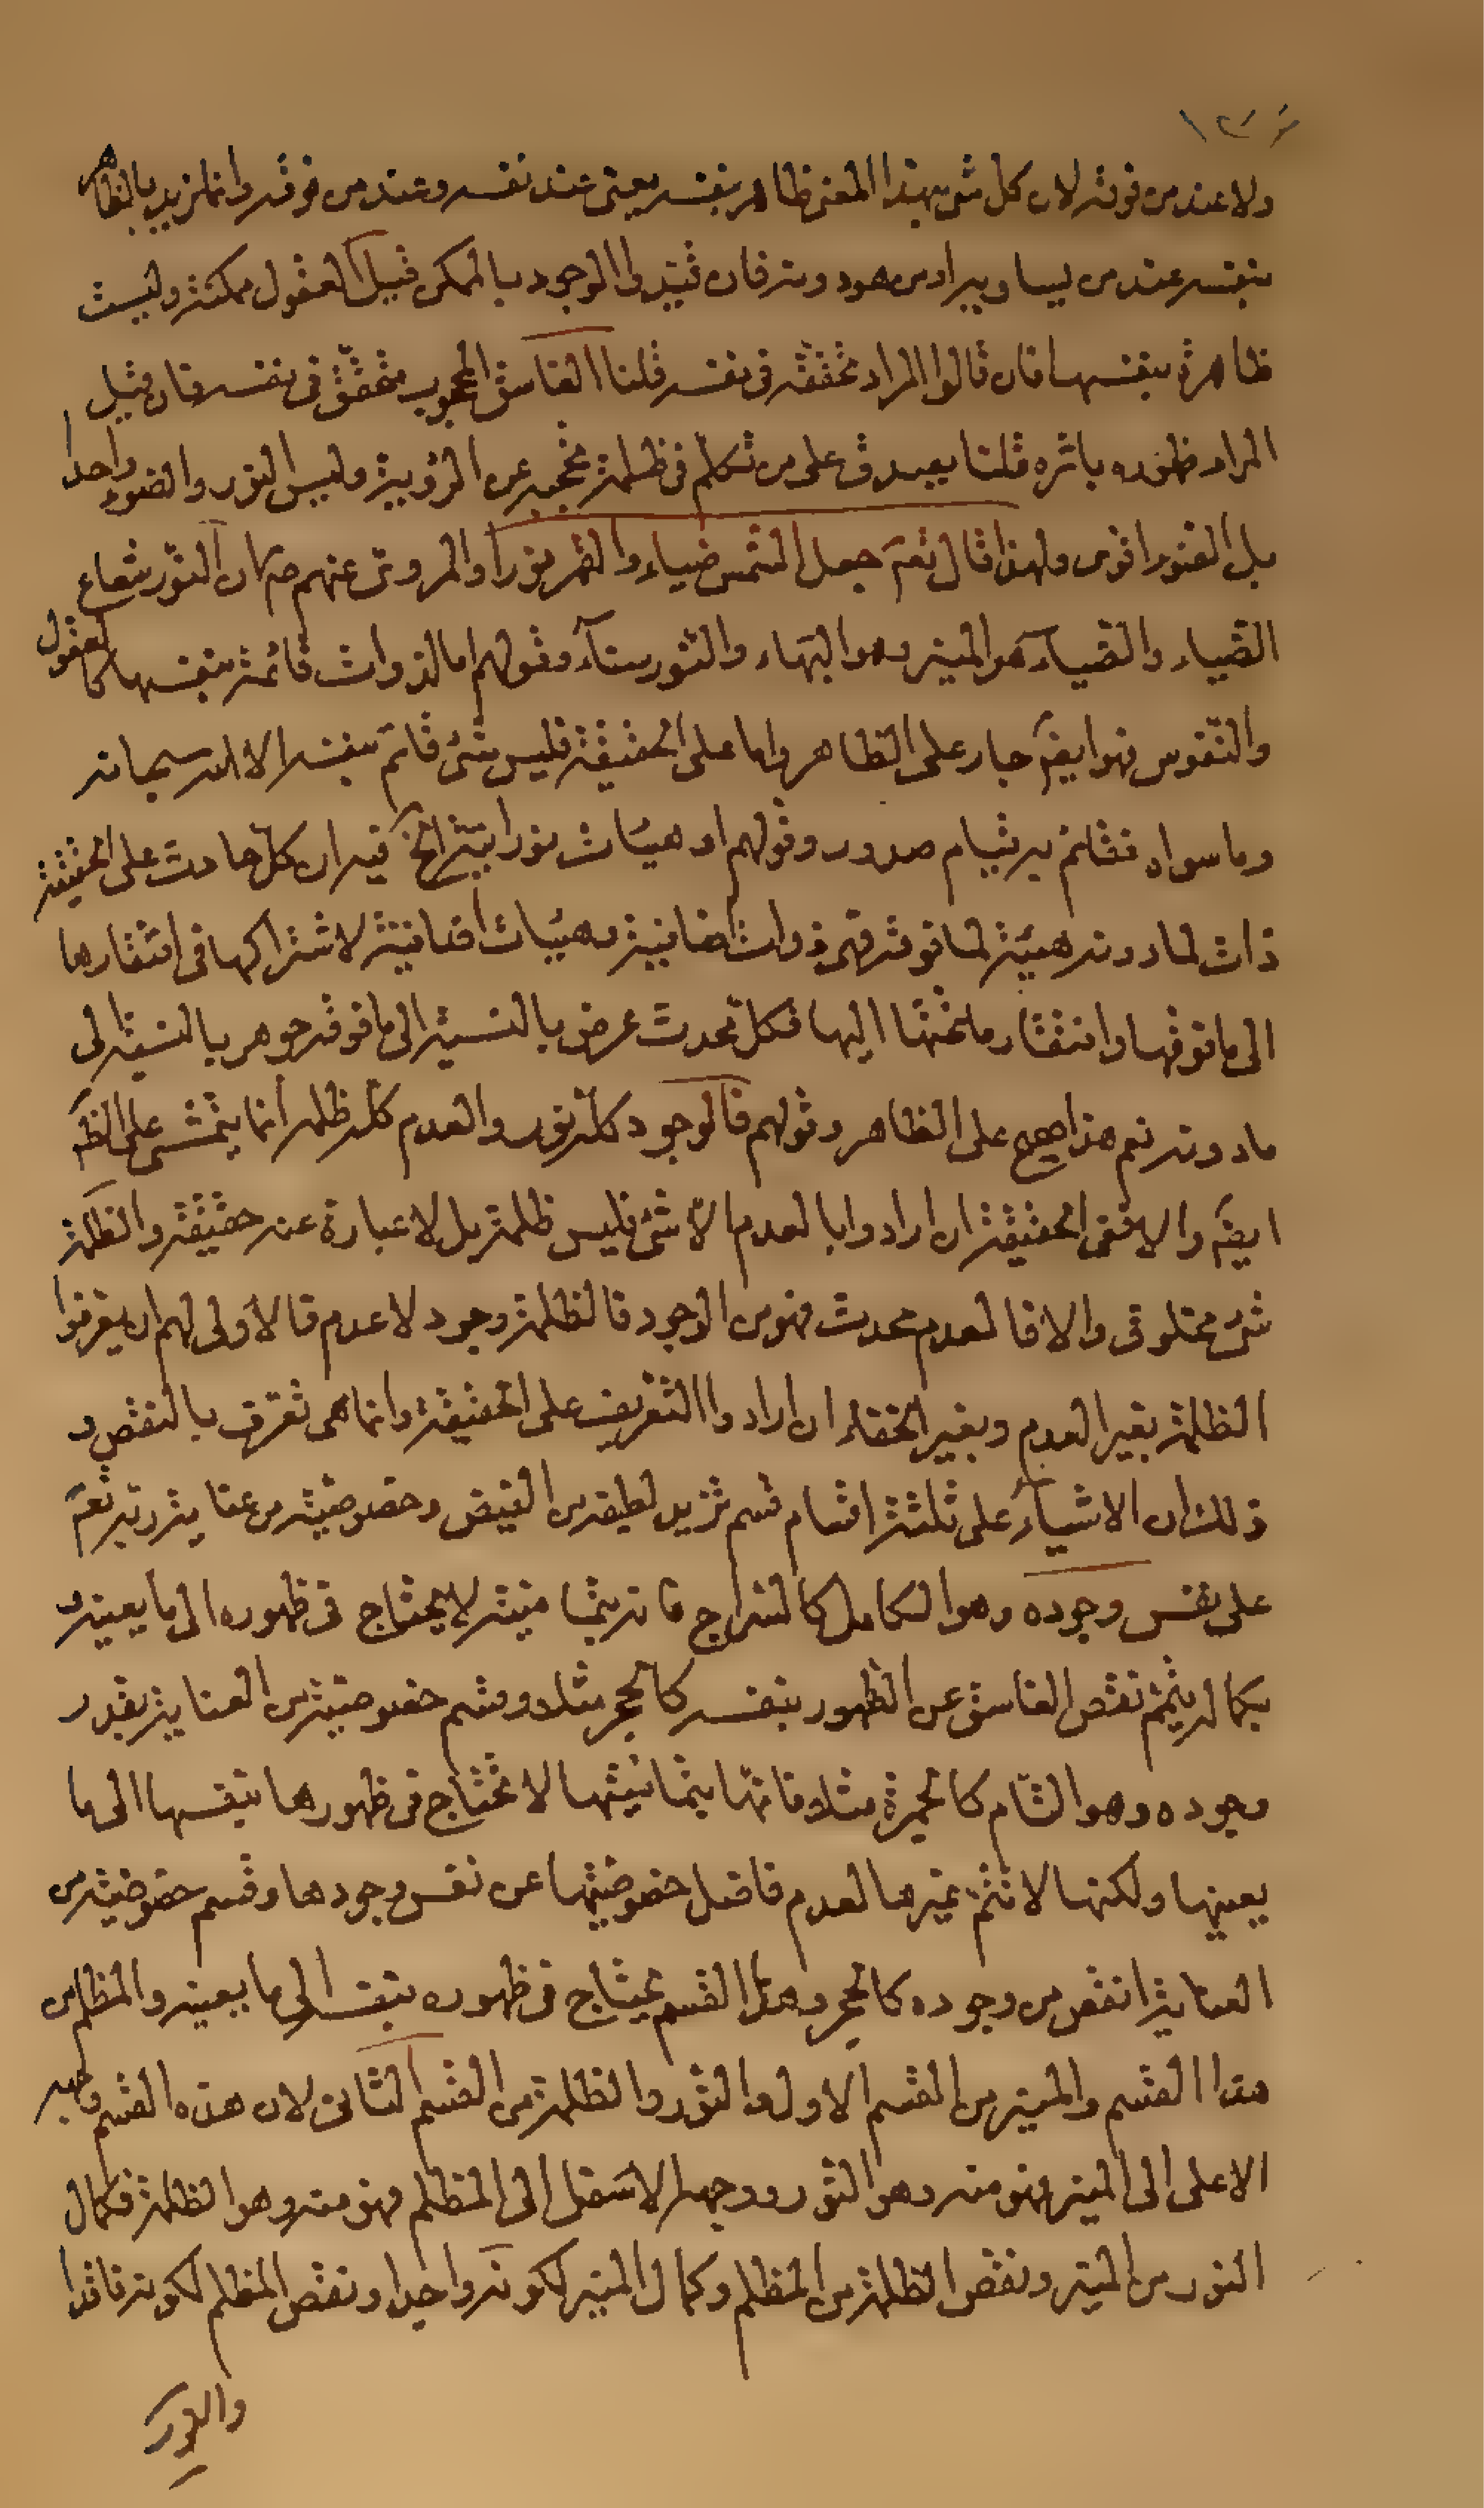 ولا عند من فوقه لان كل شئ بهذا المعنى ظاهر بنفسه يعنى عند نفسه وعند من فوقه وانما نريد بالظاهر
بنفسه عند من يساويه او من هو دونه فان قيدوا الوجود بالممكن قيل العقول ممكنة وليست
ظاهرة بنفسها فان قالوا المراد تحققه فى نفسه قلنا الغاسق المحجوب متحقق فى نفسه فان قيل
المراد ظهوره باثره قلنا يصدق على من تكلم فى ظلمة تحجبه عن الرؤية وليس النور والضوء واحدا
بل الضوء اقوى ولهذا قال تعم جعل الشمس ضياء والقمر نورا والمروى عنهم ص ان النور شعاع
الضياء والضياء هو المنير وهو البهاء والنور سناء وقولهم اما لذوات قائمة بنفسها كالعقول
والنفوس فهو ايضا جار على الظاهر واما على الحقيقة فليس شئ قائم بنفسه الا الله سبحانه
وما سواه فقائم به قيام صدور وقولهم او هيئات نورانية الخ فيه ان كل حادث على الحقيقة
ذات لما دونه هيئة لما فوقه فهى ذوات اضافية وهيئات اضافية لاشتراكها فى افتقارها
الى ما فوقها وافتقار ما تحتها اليها فكل محدث عرض بالنسبة الى ما فوقه جوهر بالنسبة الى
ما دونه نعم هذا صحيح على الظاهر وقولهم فالوجود كله نور والعدم كله ظلمة انما يتمشى على الظ
ايضا والا ففى الحقيقة ان ارادوا بالعدم لا شئ فليس ظلمة بل لا عبارة عنه حقيقة والظلمة
شئ مخلوق والا فالعدم محدث فهو من الوجود فالظلمة وجود لا عدم فالاولى لهم ان يعرفوا
الظلمة بغير العدم وبغير الخفاء ان ارادوا التعريف على الحقيقة وانما هى تعرف بالنقص و
ذلك ان الاشياء على ثلثة اقسام قسم تزيد لطيفه من الفيض وخصوصيته من عناية ربه تعم
على نفس وجوده وهو الكامل كالسراج فانه بتمامه لا يحتاج فى ظهوره الى ما يعينه و
بكماله يتمم نقص الغاسق عن الظهور بنفسه كالحجر مثلا وقسم خصوصيته من العناية بقدر
وجوده وهو التام كالجمرة مثلا فانها بتماميتها لا تحتاج فى ظهورها بنفسها الى ما
يعينها ولكنها لا تتمم غيرها لعدم فاضل خصوصيتها عن نفس وجودها وقسم خصوصيته من
العناية انقص من وجوده كالحجر وهذا القسم يحتاج فى ظهوره بنفسه الى ما يعينه والمظلم من
هذا القسم والمنير من القسم الاول والنور والظلمة من القسم الثانى لان هذه القسم وجهه
الاعلى الى المنير فهو منه وهو النور ووجهه الاسفل الى المظلم فهو منه وهو الظلمة فكمال
النور من المنير ونقص الظلمة من المظلم وكمال المنير لكونه واجدا ونقص المظلم لكونه فاقدا